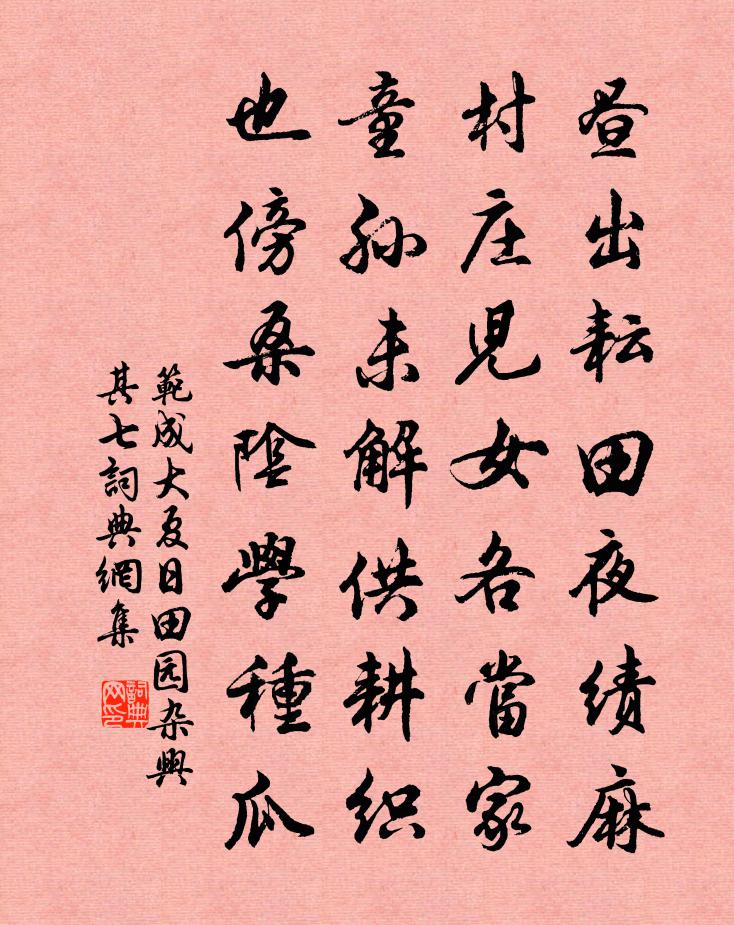 昼出耘田夜绩麻
村庄児女各當家
童孙未解供耕织
也傍桑陰學種瓜
範成大夏日田园杂興
其七詞典網集
詞典网印